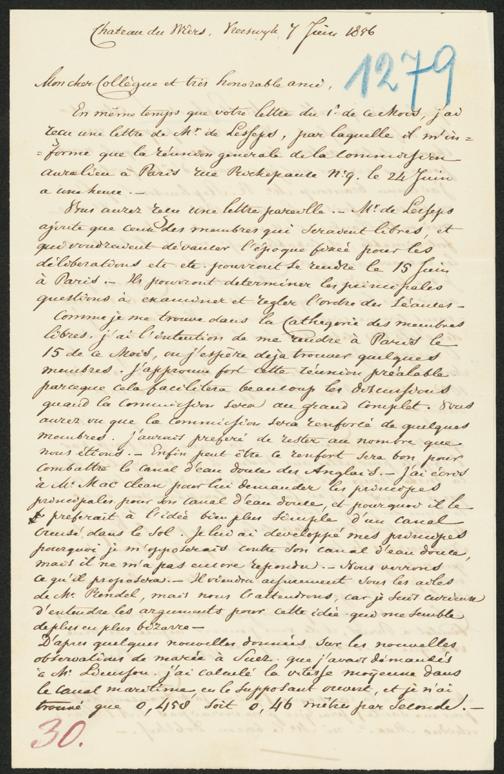 Chateau du Wiers, Vreeswyk 7 Juin 1856
1279
Mon cher Collègue et très honorable ami,
En même temps que votre lettre du 1r de ce Mois, j'ai
reçu une lettre de Mr. de Lesseps, par laquelle il m'in=
=forme que la réunion générale de la Commission
aura lieu à Paris rue Richepanse No. 9. le 24 Juin
a une heure. —
Vous aurez reçu une lettre pareille. — Mr. de Lesseps
ajoute que ceux des membres qui seraient libres, et
qui voudraient devancer l'époque fixée pour les
délibérations etc etc. pourront se rendre le 15 Juin
à Paris. — Ils pourront determiner les principales
questions à examiner et regler l'ordre des Séances —
Comme je me trouve dans la Cathegorie des membres
libres. j'ai l'intention de me rendre à Paris le
15 de ce Mois, ou j'espère deja trouver quelques
membres. j'approuve fort cette réunion préalable
parceque cela facilitera beaucoup les discussions
quand la commission sera au grand complet. Vous
aurez vu que la commission sera renforcé de quelques
membres. j'aurais preferé de rester au nombre que
nous étions. — Enfin peut être ce renfort sera bon pour
combattre le canal d'eau douce des Anglais. — J'ai écris
à Mr. Mac Clean pour lui demander les principes
principales pour son canal d'eau douce, et pourquoi il le
preferait à l'idée bien plus simple d'un canal
creusé dans le sol. Je lui ai developpé mes principes
pourquoi je m'opposerais contre son canal d'eau douce,
mais il ne m'a pas encore repondu. — Nous verrons
ce qu'il proposera. — Il viendra aisurement sous les ailes
de Mr. Rendel, mais nous l'attendrons, car je suis curieux
d'entendre les arguments pour cette idée qui me semble
de plus en plus bizarre —
D'apres quelques nouvelles données sur les nouvelles
observations de marée à Suez. que j'avais demandés
à Mr. j'ai calculé la vitesse moyenne dans
le Canal maritime, en le supposant ouvert, et je n'ai
trouvé que 0,458 soit 0,46 mètres par Seconde. —
30.